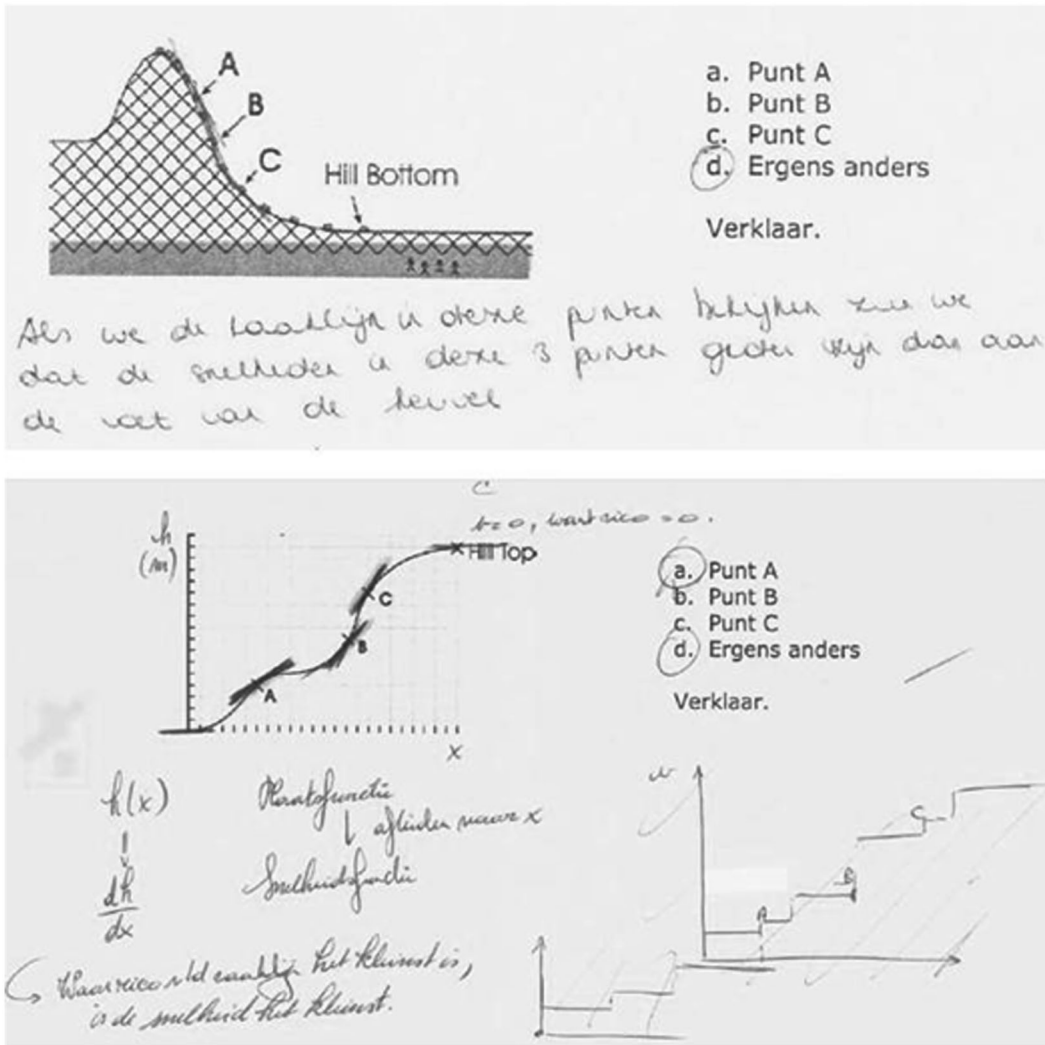 A
B
C
Hill Bottom
a. Punt A
b. Punt B
c. Punt C
d. Ergens anders
Verklaar.
Als we de raaklijn in deze punten bekijken zien we
dat de snelheden in deze 3 punten groter zijn dan aan
de voet van de heuvel
C
v=0, want rico = 0.
h
(m)
Hill Top
C
B
A
x
a. Punt A
b. Punt B
c. Punt C
d. Ergens anders
Verklaar.
h(x)
Plaatsfunctie
afleiden naar x
dh
dx
Snelheidsfunctie
Waar rico v/d raaklijn het kleinst is,
is de snelheid het kleinst.
A
B
C